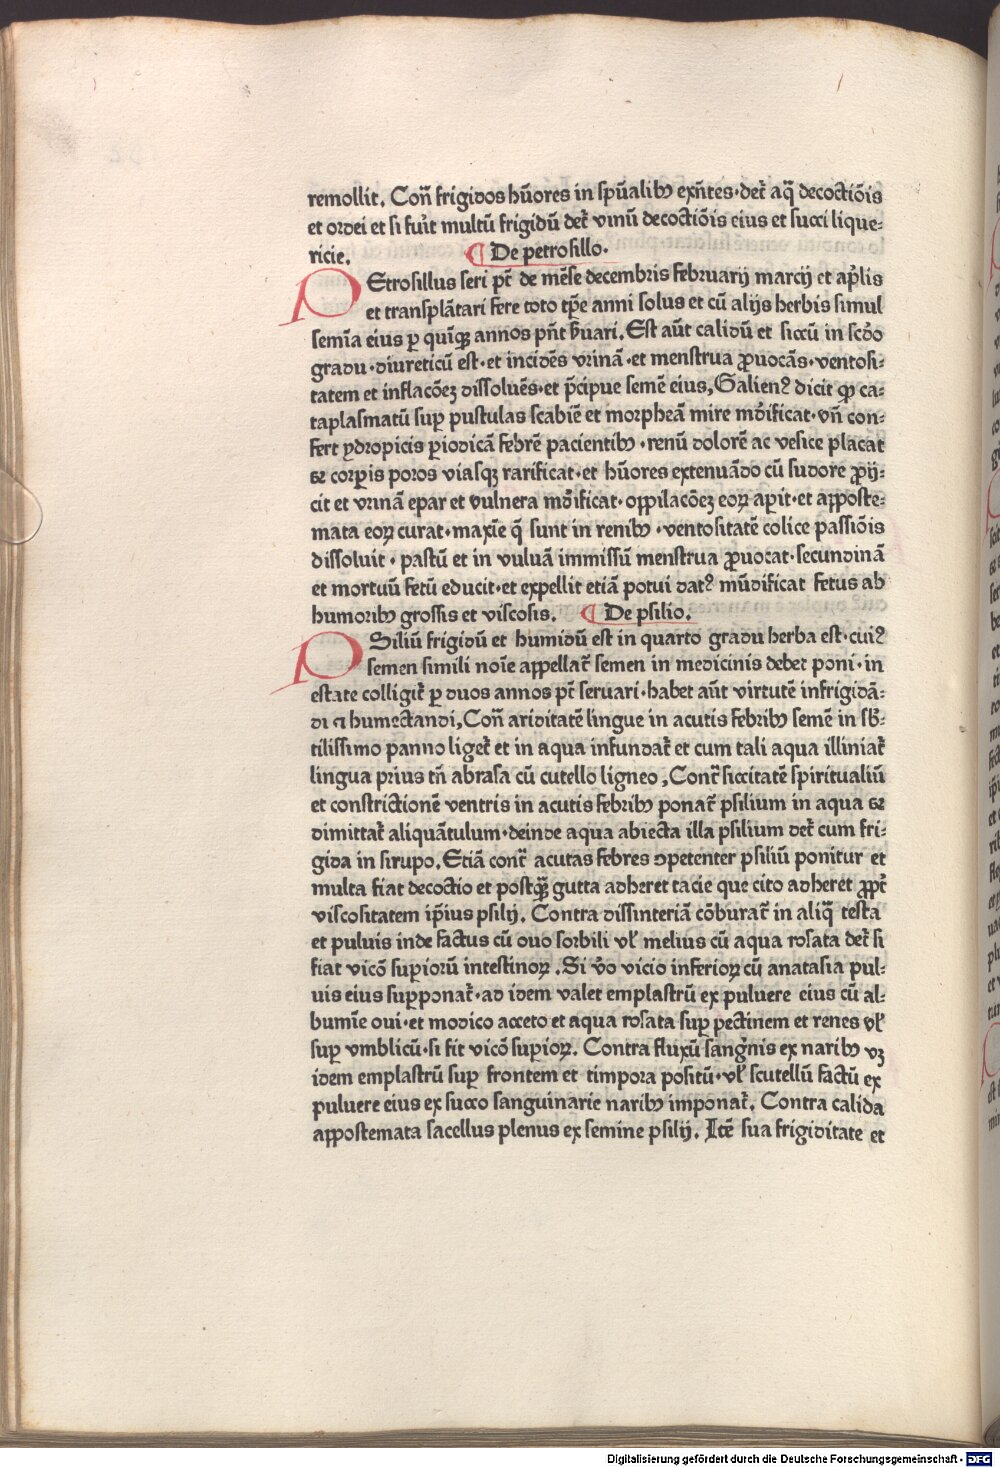 remollit. Coñ frigidos hūores in spūalibꝰ exñtes·det᷑ aq̄ decoctiōis
et ordei et si fuīt multū frigidū det᷑ vinū decoctiōis eius et succi lique⸗
ricie. ¶ De petrosillo·
PEtrosillus seri pt̄ de mēse decembris februarij marcij et ap̄lis
et transplātari fere toto tp̄e anni solus et cū alijs herbis simul
semīa eius ꝑ quīqꝫ annos pn̄t ẜuari. Est aūt calidū et siccū in scd̄o
gradu·diureticū est·et incidēs vrinā·et menstrua ꝓuocās·ventosi⸗
tatem et inflacōeꝫ dissoluēs·et p̄cipue semē eius, Galienꝰ dicit ꝙ ca⸗
taplasmatū suꝑ pustulas scabiē et morpheā mire mōificat·vn̄ con⸗
fert ydropicis ꝑiodicā febrē pacientibꝰ·renū dolorē ac vesice placat
⁊ corꝑis poros viasqꝫ rarificat·et hūores extenuādo cū sudore ꝓij⸗
cit et vrinā epar et vulnera mōificat·oppilacōeꝫ eoꝝ aꝑit·et apposte⸗
mata eoꝝ curat·maxīe q̄ sunt in renibꝰ·ventositatē colice passiōis
dissoluit·pastū et in vuluā immissū menstrua ꝓuocat·secundinā
et mortuū fetū educit·et expellit etiā potui datꝰ mūdificat fetus ab
humoribꝰ grossis et viscosis. ¶ De psilio.
PSiliū frigidū et humidū est in quarto gradu herba est·cuiꝰ
semen simili noīe appellat᷑ semen in medicinis debet poni·in
estate colligit᷑ ꝑ duos annos pt̄ seruari·habet aūt virtutē infrigidā⸗
di ⁊ humectandi, Coñ ariditatē lingue in acutis febribꝰ semē in sb̄⸗
tilissimo panno liget᷑ et in aqua infundat᷑ et cum tali aqua illiniat᷑
lingua prius tn̄ abrasa cū cutello ligneo, Cont᷑ siccitatē spiritualiū
et constrictionē ventris in acutis febribꝰ ponat᷑ psilium in aqua ⁊
dimittat᷑ aliquātulum·deinde aqua abiecta illa psilium det᷑ cum fri⸗
gida in sirupo. Etiā cont᷑ acutas febres ↄpetenter psiliū ponitur et
multa fiat decoctio et postꝗ̄ gutta adheret tacie que cito adheret ꝓpt᷑
viscositatem ip̄ius psilij. Contra dissinteriā cōburat᷑ in aliq̄ testa
et puluis inde factus cū ouo sorbili vl̓ melius cū aqua rosata det᷑ si
fiat vicō suꝑiorū intestinoꝝ. Si ṽo vicio inferioꝝ cū anatasia pul⸗
uis eius suꝑponat᷑·ad idem valet emplastrū ex puluere eius cū al⸗
bumīe oui·et modico acceto et aqua rosata suꝑ pectinem et renes vl̓
suꝑ vmblicū·si fit vicō suꝑioꝝ. Contra fluxū sangnīs ex naribꝰ vꝫ
idem emplastrū suꝑ frontem et timpora positū·vl̓ scutellū factū ex
puluere eius ex succo sanguinarie naribꝰ imponat᷑. Contra calida
appostemata sacellus plenus ex semine psilij. Itē sua frigiditate et
Digitalisierung gefördert durch die Deutsche Forschungsgemeinschaft - DFG